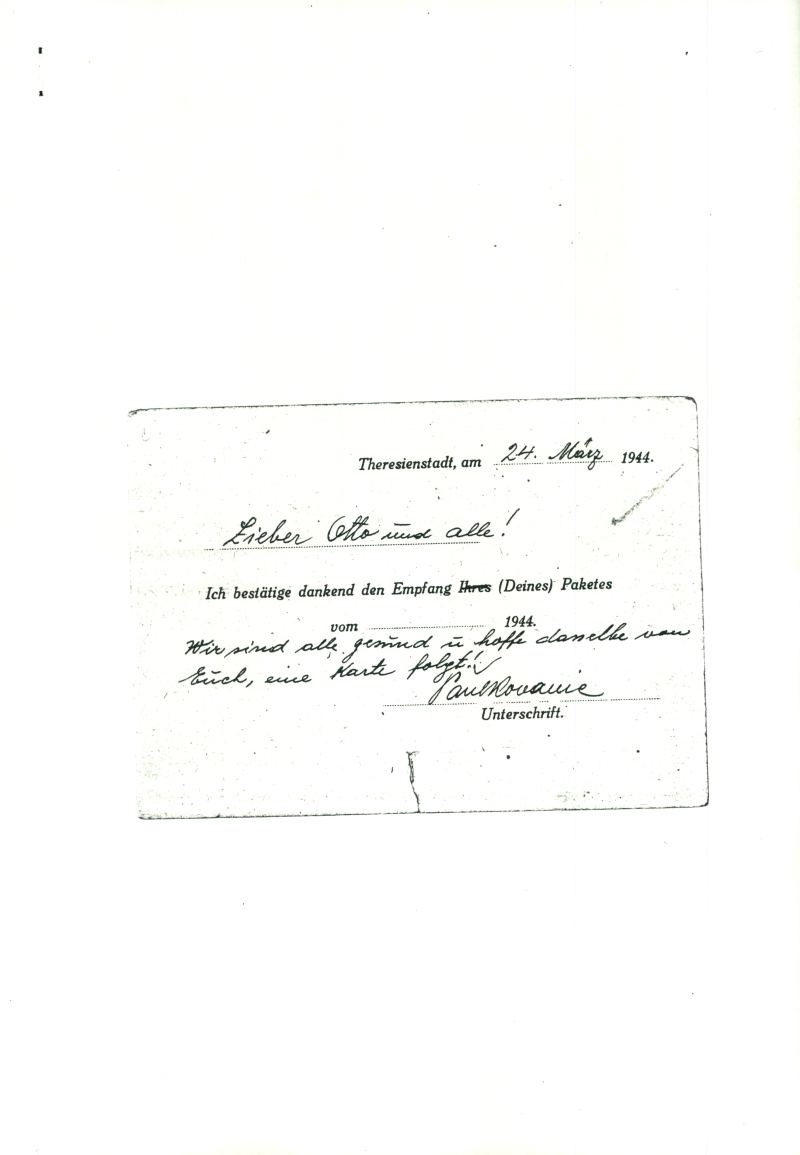 Theresienstadt, am 24. März 1944.
Lieber Otto und alle!
Ich bestätige dankend den Empfang Ihres (Deines) Paketes
vom 1944.
Wir sind alle gesund u hoffe dasselbe von
Euch, eine Karte folgt!
Paul
Unterschrift.